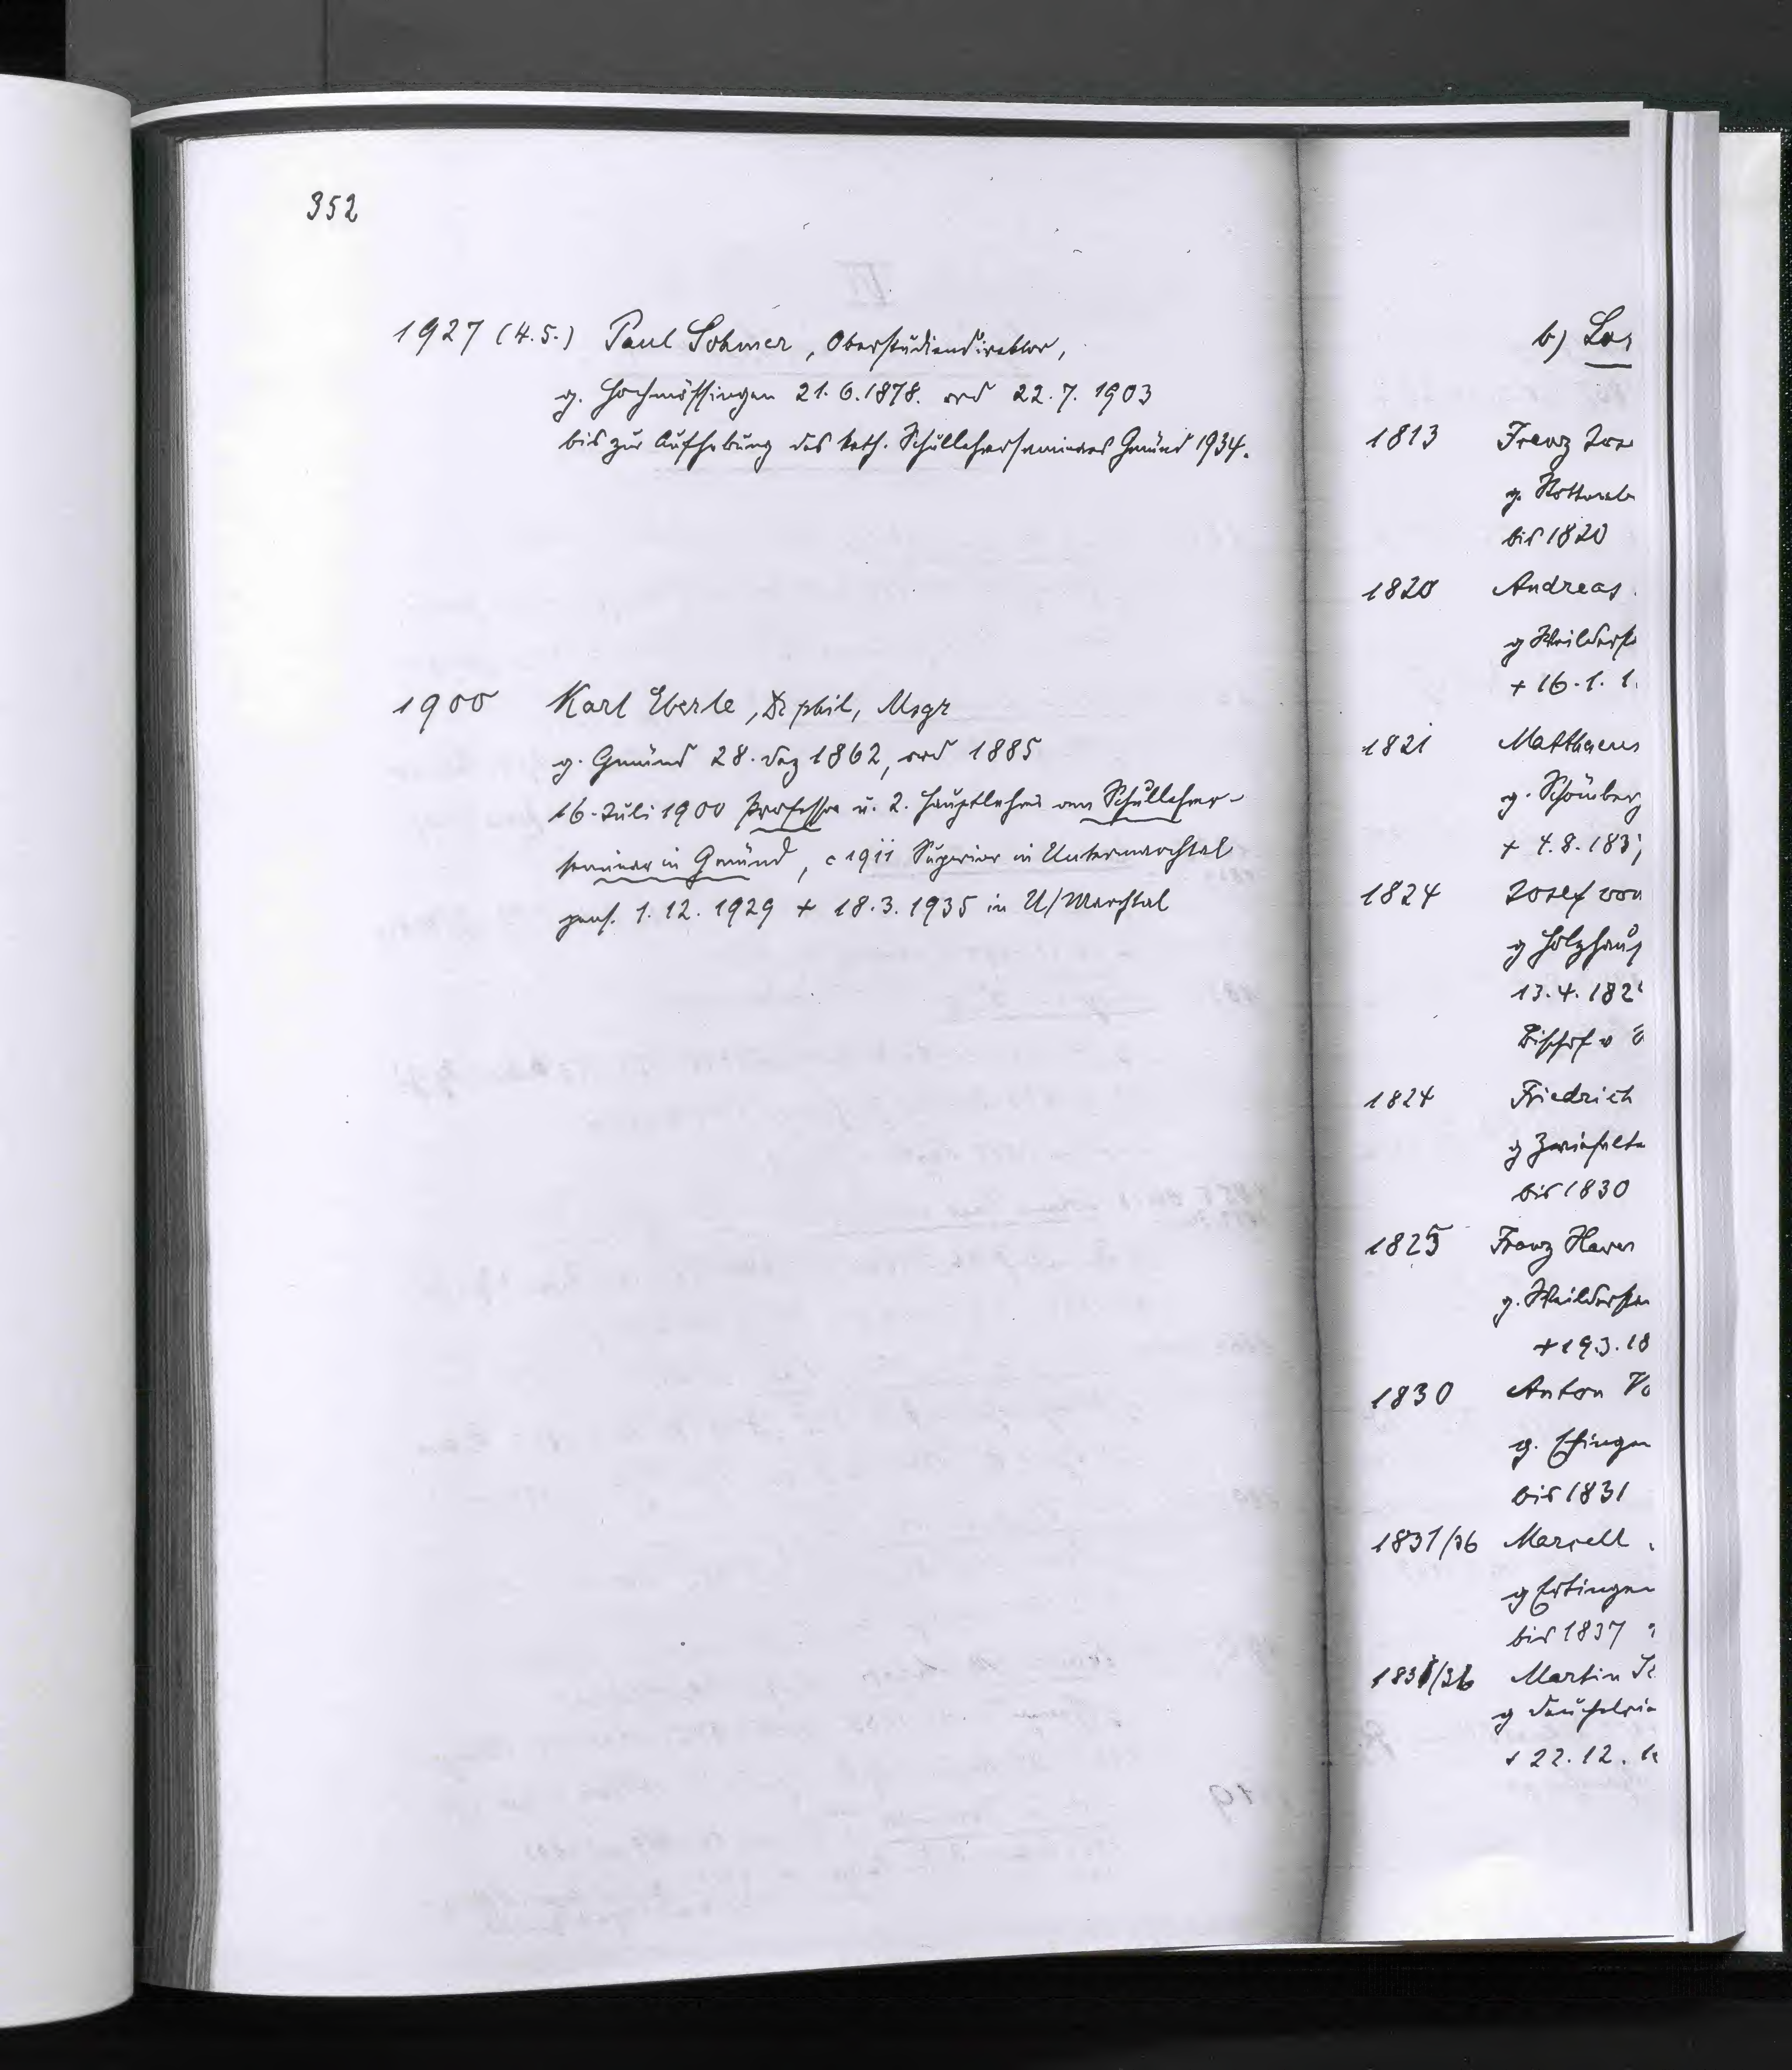 352
1927 (4.5.) Paul Sohmer, Oberstudiendirektor,
g. Hochmössingen 21.6.1878. ord 22.7.1903
bis zur Aufhebung des kath. Schullehrerseminars Gmünd 1934.
1900 Karl Eberle, Dr phil, Msgr
g. Gmünd 28. Dez 1862, ord 1885
16. Juli 1900 Professor u. 2. Hauptlehrer am Schullehrer-
seminar in Gmünd, c 1911 Superior in Untermarchtal
pens. 1.12.1929 + 18.3.1935 in U/Marchtal
b)
1813 Franz
g.
bis 1820
1820 Andreas
g Weilderst
+ 16.1.1
1821 Matthaeus
g. Schömberg
+ 4.8.183
1824 Josef von
g Holzhaus
13.4.182
Bischof v
1824 Friedrich
g Zwiefalte
bis 1830
1825 Franz Xaver
g. Weilderstad
+ 19.3.18
1830 Anton Vo
g. Ehingen
bis 1831
1831/36 Marcell
g Ertingen
bis 1837
1836/36 Martin
g
+ 22.12.1